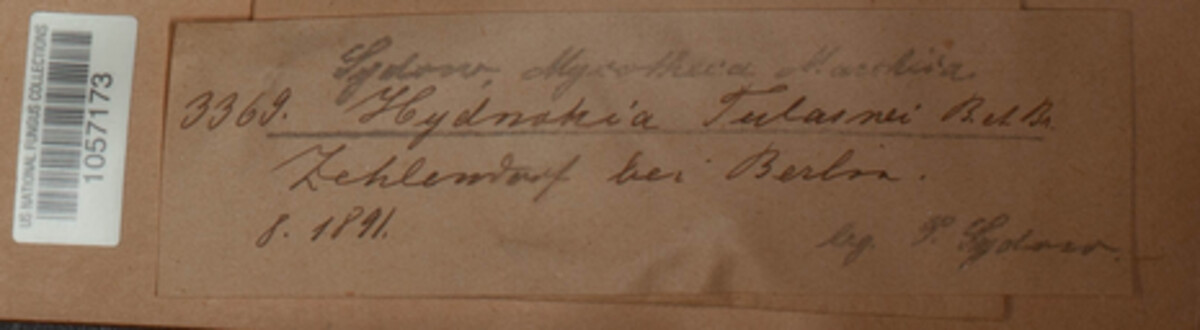 US NATIONAL FUNGUS COLLECTIONS
1057173
Sydow, Mycotheca Marchica.
3369. Hydnotria Tulasnei B. et Br.
Zehlendorf bei Berlin.
8. 1891.
leg. P. Sydow.